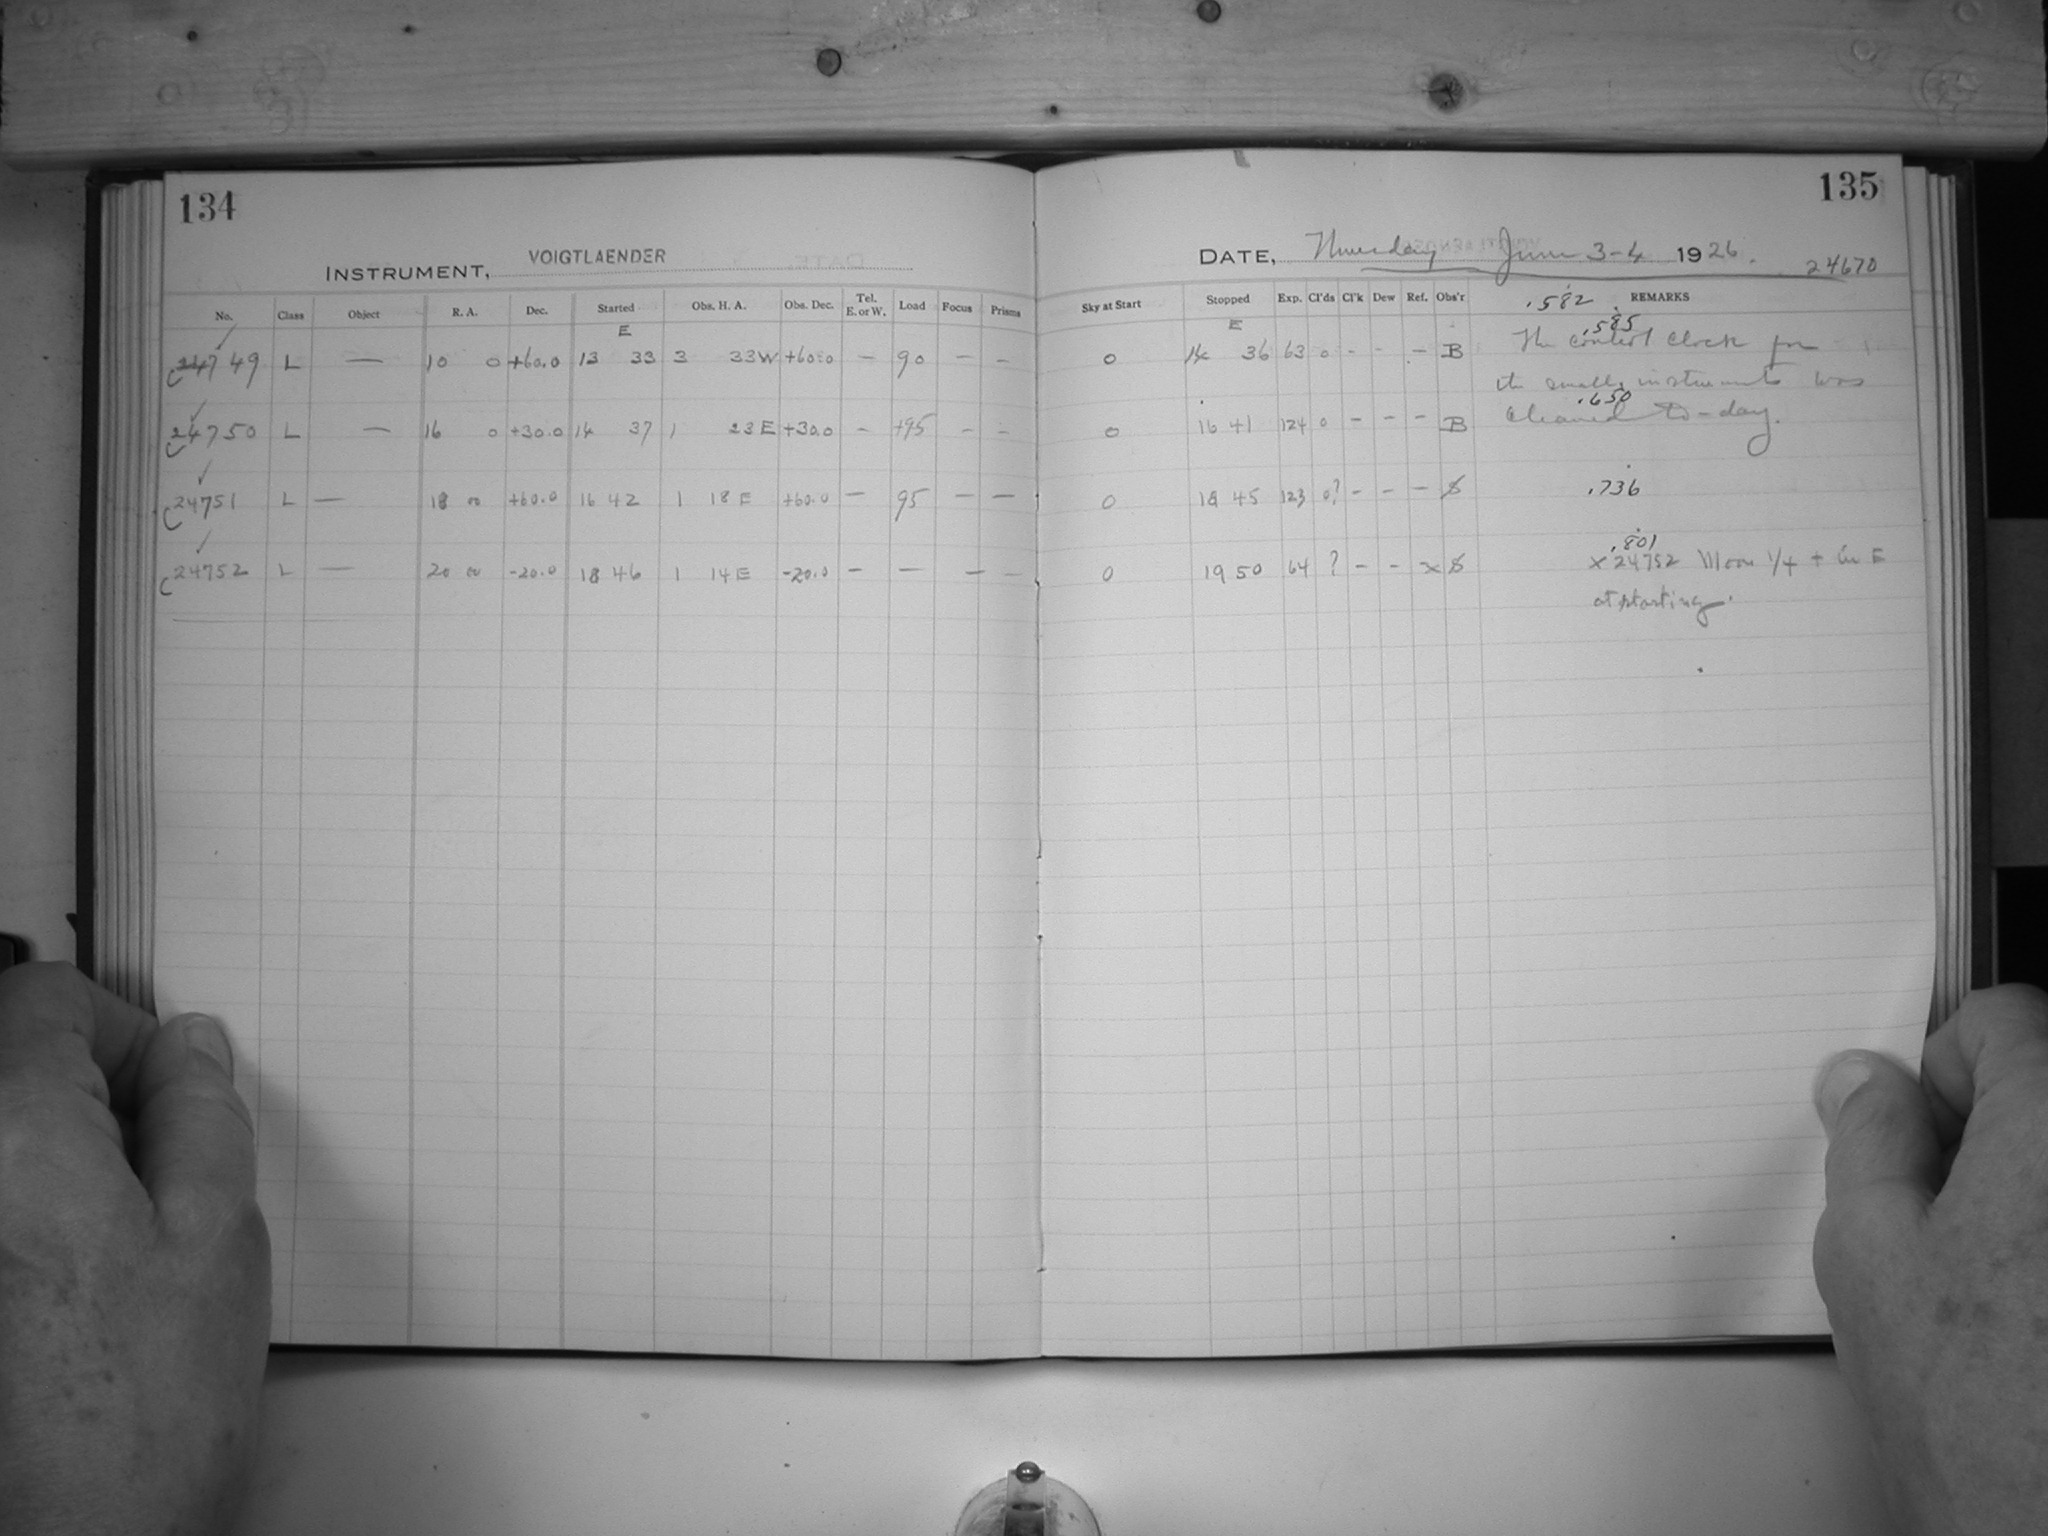 134
INSTRUMENT, VOIGTLAENDER
No. Class Object R. A. Dec. Started Obs. H. A. Obs. Dec. Tel. E. or W. Load Focus Prisms
E
24749 L — 10 0 +60.0 13 33 3 33W +60.0 — 90 — —
24750 L — 16 0 +30.0 14 37 1 23E +30.0 — +95 — —
24751 L — 18 00 +60.0 16 42 1 18E +60.0 — 95 — —
24752 L — 20 00 -20.0 18 46 1 14E -20.0 — — — —
135
DATE, Thursday June 3-4 1926.
24670
Sky at Start Stopped Exp. Cl'ds Cl'k Dew Ref. Obs'r REMARKS
.582
E
.585
0 14 36 63 0 - - - B The control clock for
the small instruments was
.650
0 16 41 124 0 - - - B cleaned to-day.
0 18 45 123 0? - - - S .736
.801
0 19 50 64 ? - - x S x 24752 Moon 1/4 + in E
at starting.